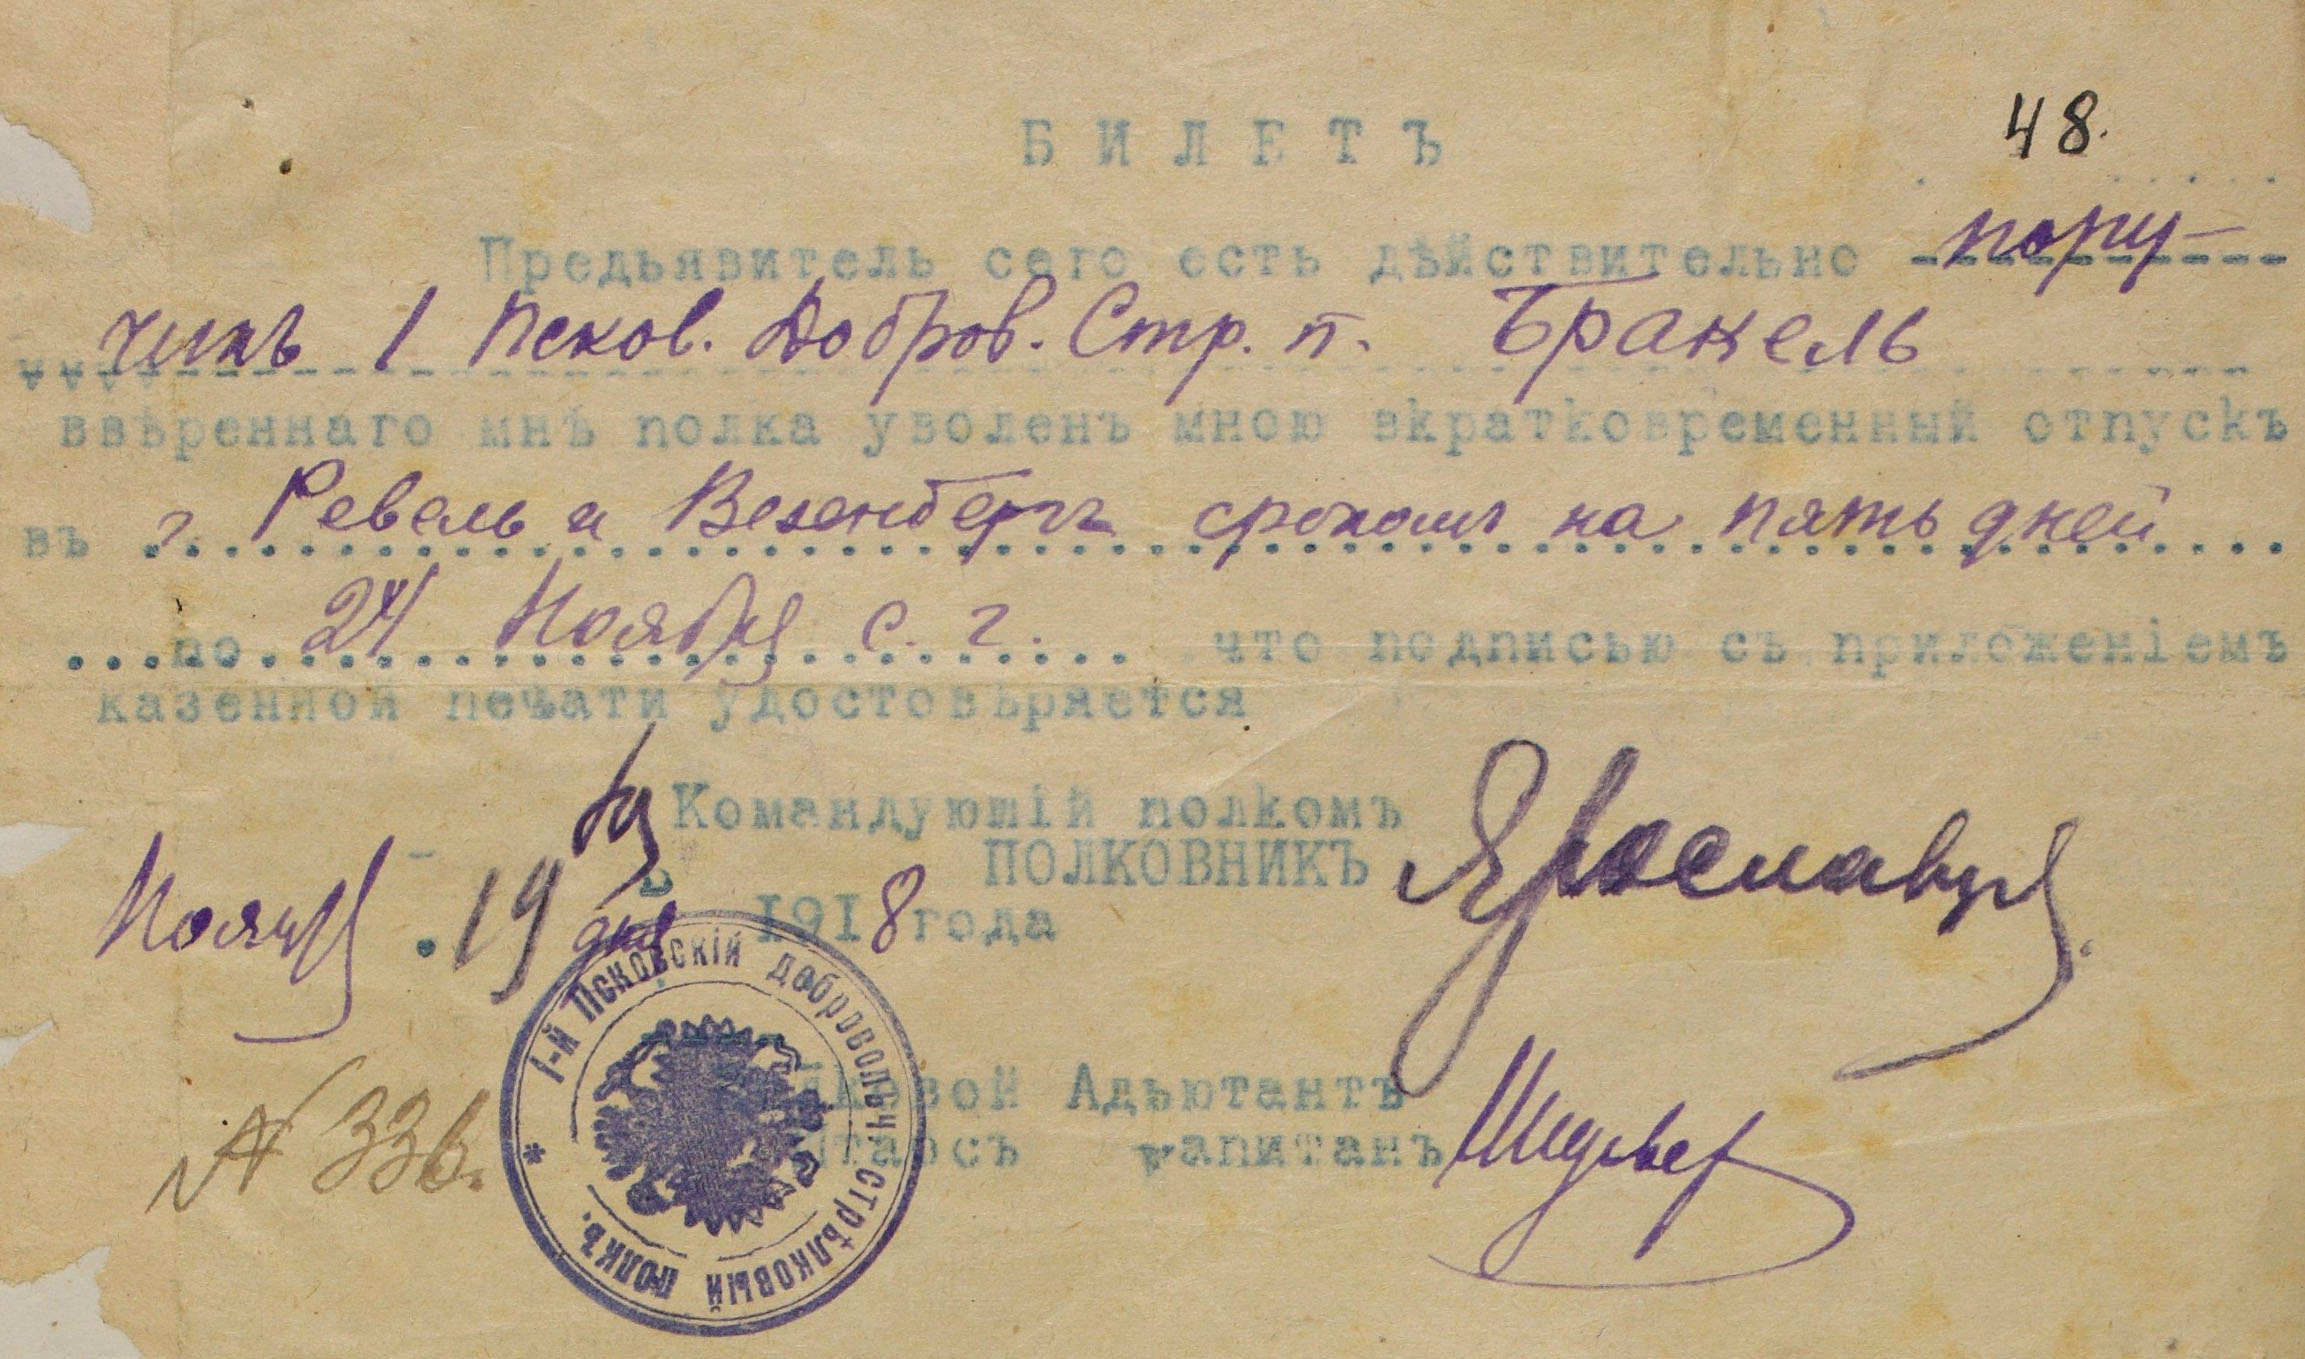 48.
БИЛЕТЪ
Предьявитель сего есть дѣйствительно пору-
чикъ 1 Псков. Добров. Стр. п. Бракель
ввѣреннаго мнѣ полка уволенъ мною вкратковременный отпускъ
въ г. Ревель и Везенбергъ срокомъ на пять дней
по 24 Ноября с. г. что подписью съ приложеніемъ
казенной печати удостовѣряется
Командующій полкомъ
ПОЛКОВНИКЪ
Ноября 19 дня 1918 года
1-й Псковскій добровольч. стрѣлковый полкъ.
Адьютантъ
капитанъ
№ 336.